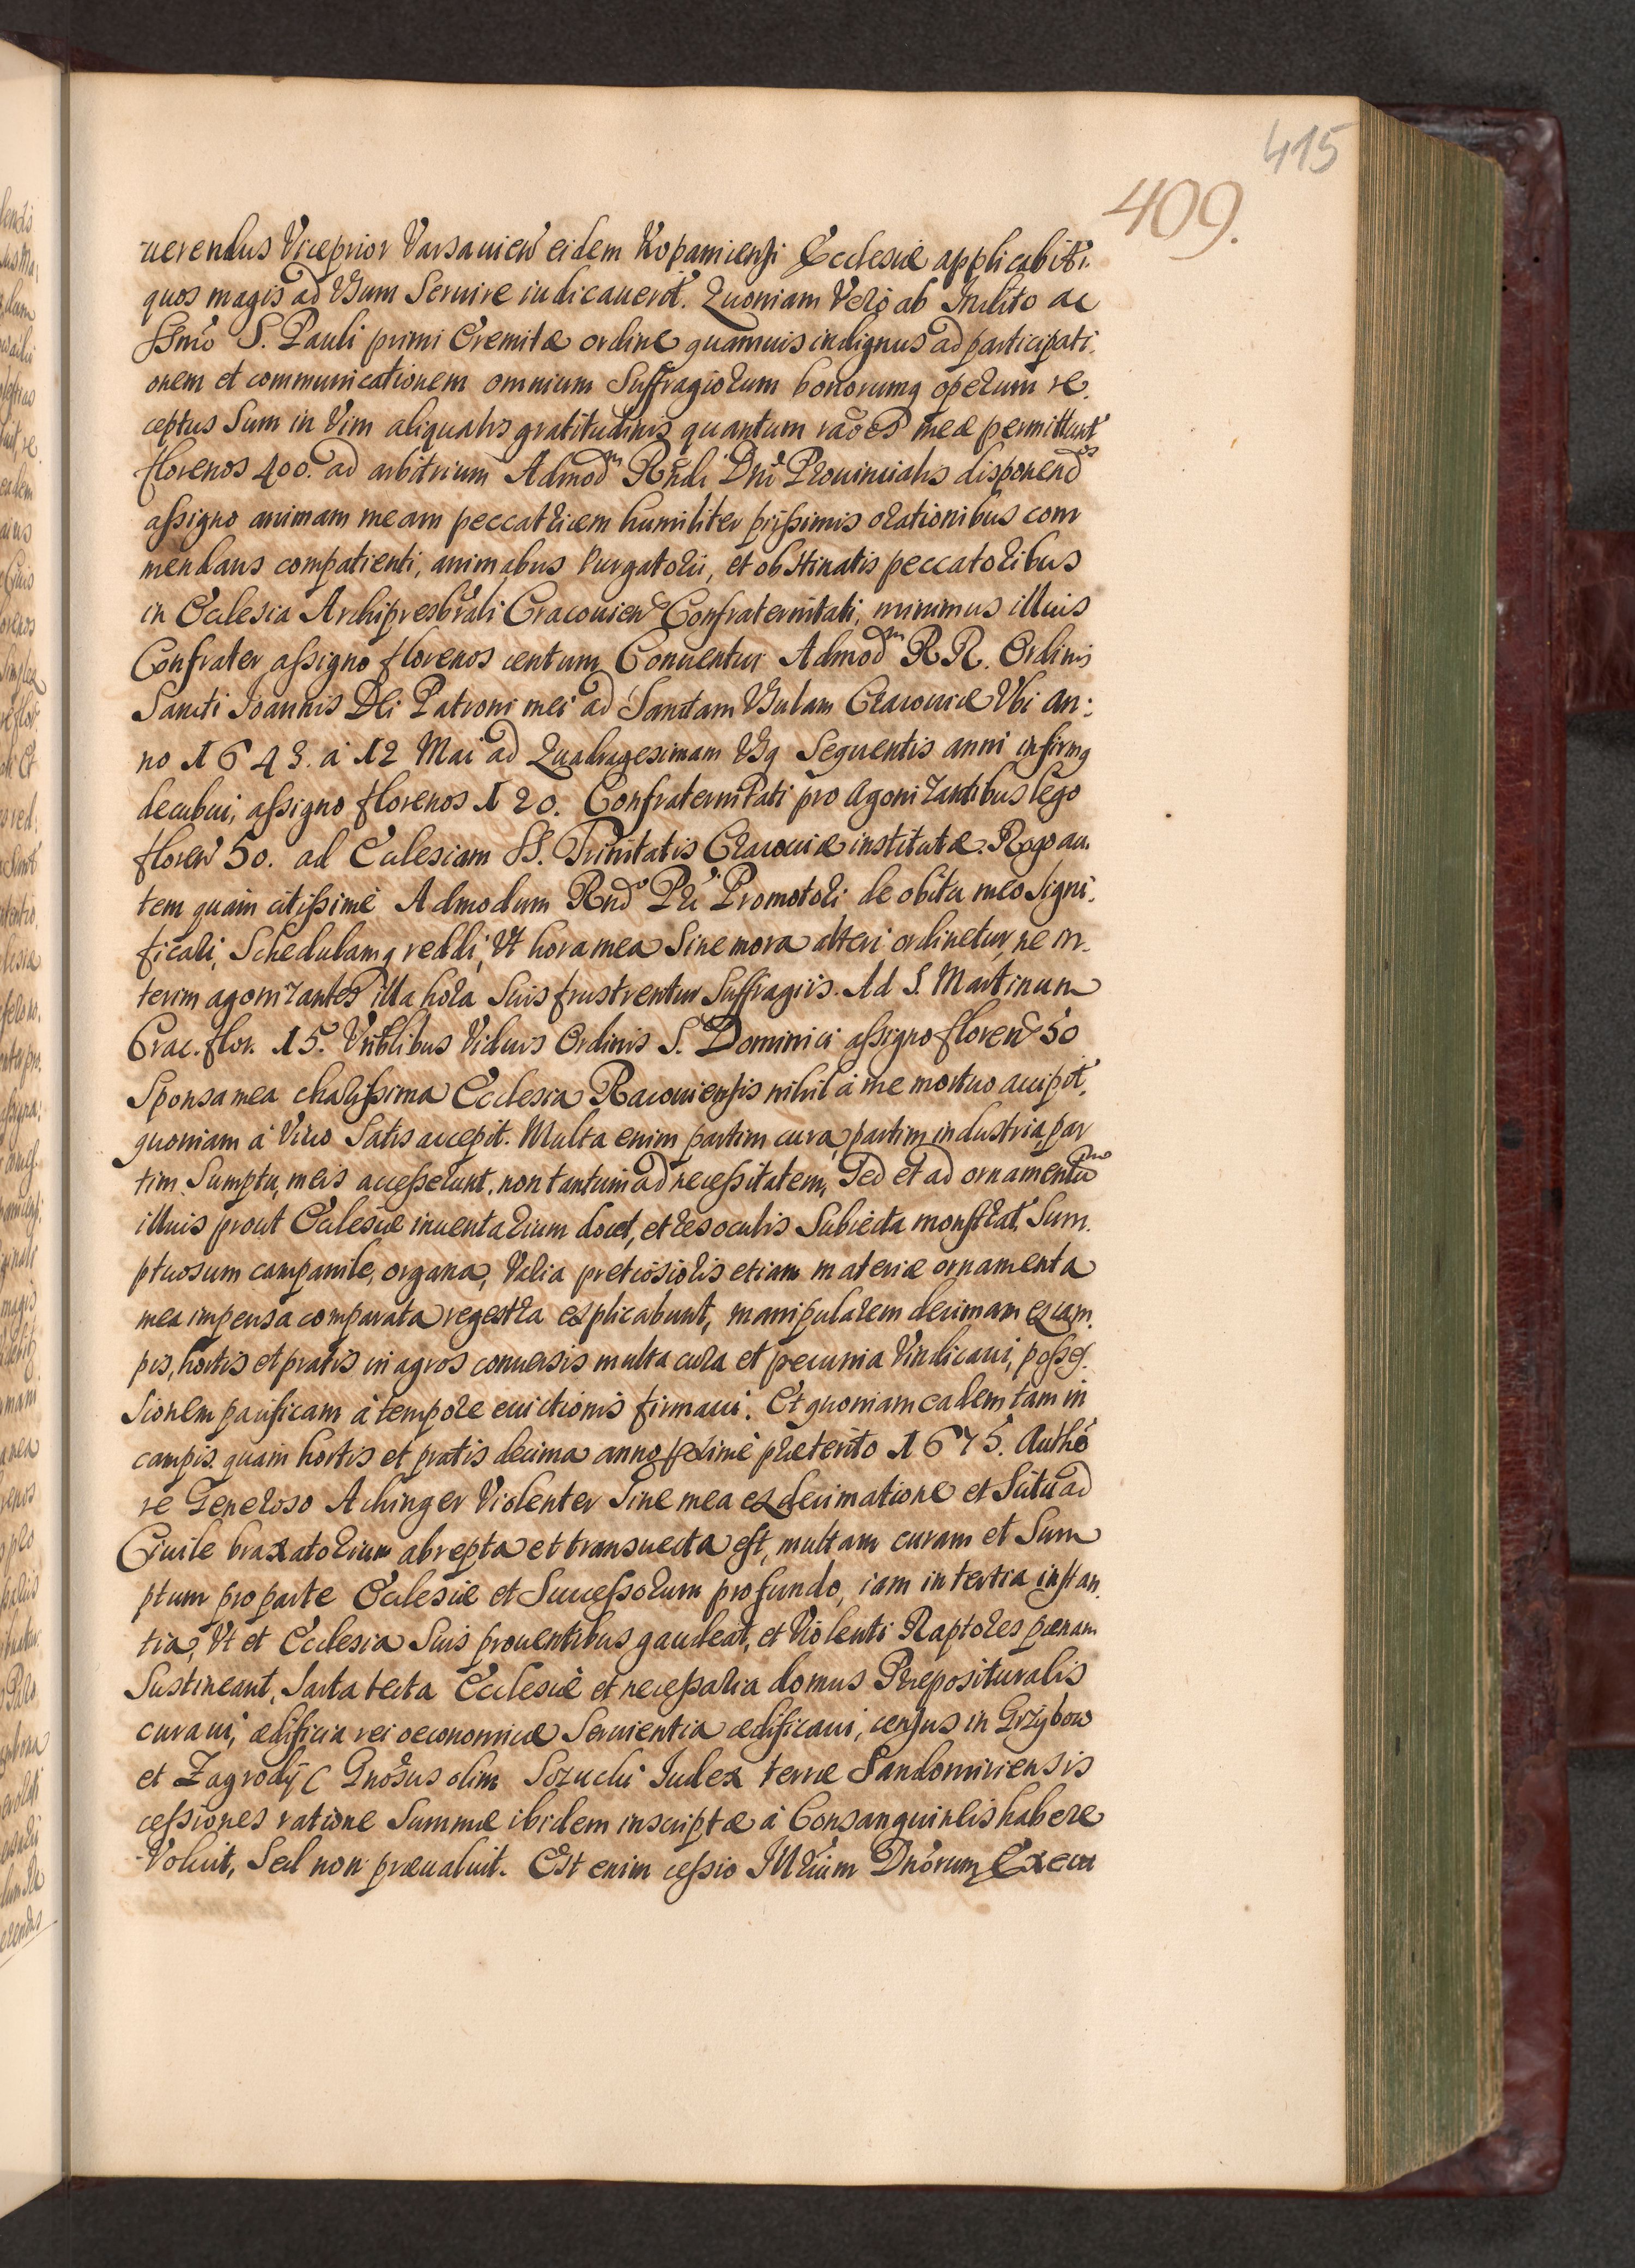 415
409.
uerendus Viceprior Varsauien eidem Kopamiensi Ecclesiæ applicabit.
quos magis ad Vsum Seruire iudicauerit. Quoniam Verò ab Inclito ac
Ssmo S. Pauli primi Eremitæ ordine quamuis indignus ad participati.
onem et communicationem omnium Suffragiorum bonorumq operum re.
ceptus Sum in Vim aliqualis gratitudinis quantum raões meæ permittunt
florenos 400. ad arbitrium Admodm Rndi Dni Prouincialis disponendos
assigno animam meam peccatricem humiliter pijssimis orationibus com
mendans compatienti, animabus Purgatorii, et obstinatis peccatoribus
in Ecclesia Archipresbrāli Cracouien Confraternitati, minimus illius
Confrater assigno florenos centum Conuentui Admodm RR. Ordinis
Sancti Ioannis Dei Patroni mei ad Sanctam Vrsulam Cracouiæ Vbi an:
no 1643. à 12 Mai ad Quadragesimam Vsq Sequentis anni infirmq
decubui, assigno florenos 120. Confraternitati pro Agonizantibus lego
floren 50. ad Ecclesiam SS. Trinitatis Cracouiæ institutæ. Rogo au.
tem quàm citissimè Admodum Rndo Pri Promotori de obitu meo signi.
ficari, Schedulamq reddi, Vt hora mea Sine mora alteri ordinetur, ne in.
terim agonizantes illa hora Suis frustrentur Suffragiis. Ad S. Martinum
Crac. flor. 15. Vribilibus Viduis Ordinis S. Dominici assigno floren 50
Sponsa mea charissima Ecclesia Racouiensis nihil à me mortuo accipit,
quoniam à Viuo Satis accepit. Multa enim partim cura, partim industria, par
tim Sumptu, meis accesserunt, non tantum ad necessitatem, Sed et ad ornamentū
illius prout Ecclesiæ inuentarium docet, et res oculis Subiecta monstrat. Sum.
ptuosum campanile, organa, Varia pretiosioris etiam materiæ ornamenta
mea impensa comparata regestra explicabunt, manipularem decimam ex cam.
pis, hortis et pratis in agros conuersis multa cura et pecunia Vindicaui, posses.
sionem pacificam à tempore euictionis firmaui. Et quoniam eadem tam in
campis quàm hortis et pratis decima anno pximè præterito 1675. Autho
re Generoso Achinger Violenter Sine mea exdecimatione et Scitu ad
Ciuile braxatorium abrepta et transuecta est, multam curam et Sum
ptum pro parte Ecclesiæ et Successorum profundo, iam in tertia instan.
tia, Vt et Ecclesia Suis prouentibus gaudeat, et Violenti Raptores pœnam
Sustineant, Sarta tecta Ecclesiæ et necessaria domus Præposituralis
curaui, ædificia rei oeconomicæ Seruientia ædificaui, census in Grzybow
et Zagrody ( Gnõsus olim Iudex terræ Sandomiriensis
cessiones ratione Summæ ibidem inscriptæ à Consanguineis habere
Voluit, Sed non præualuit. Est enim cessio Illrium Dnõrum Execu